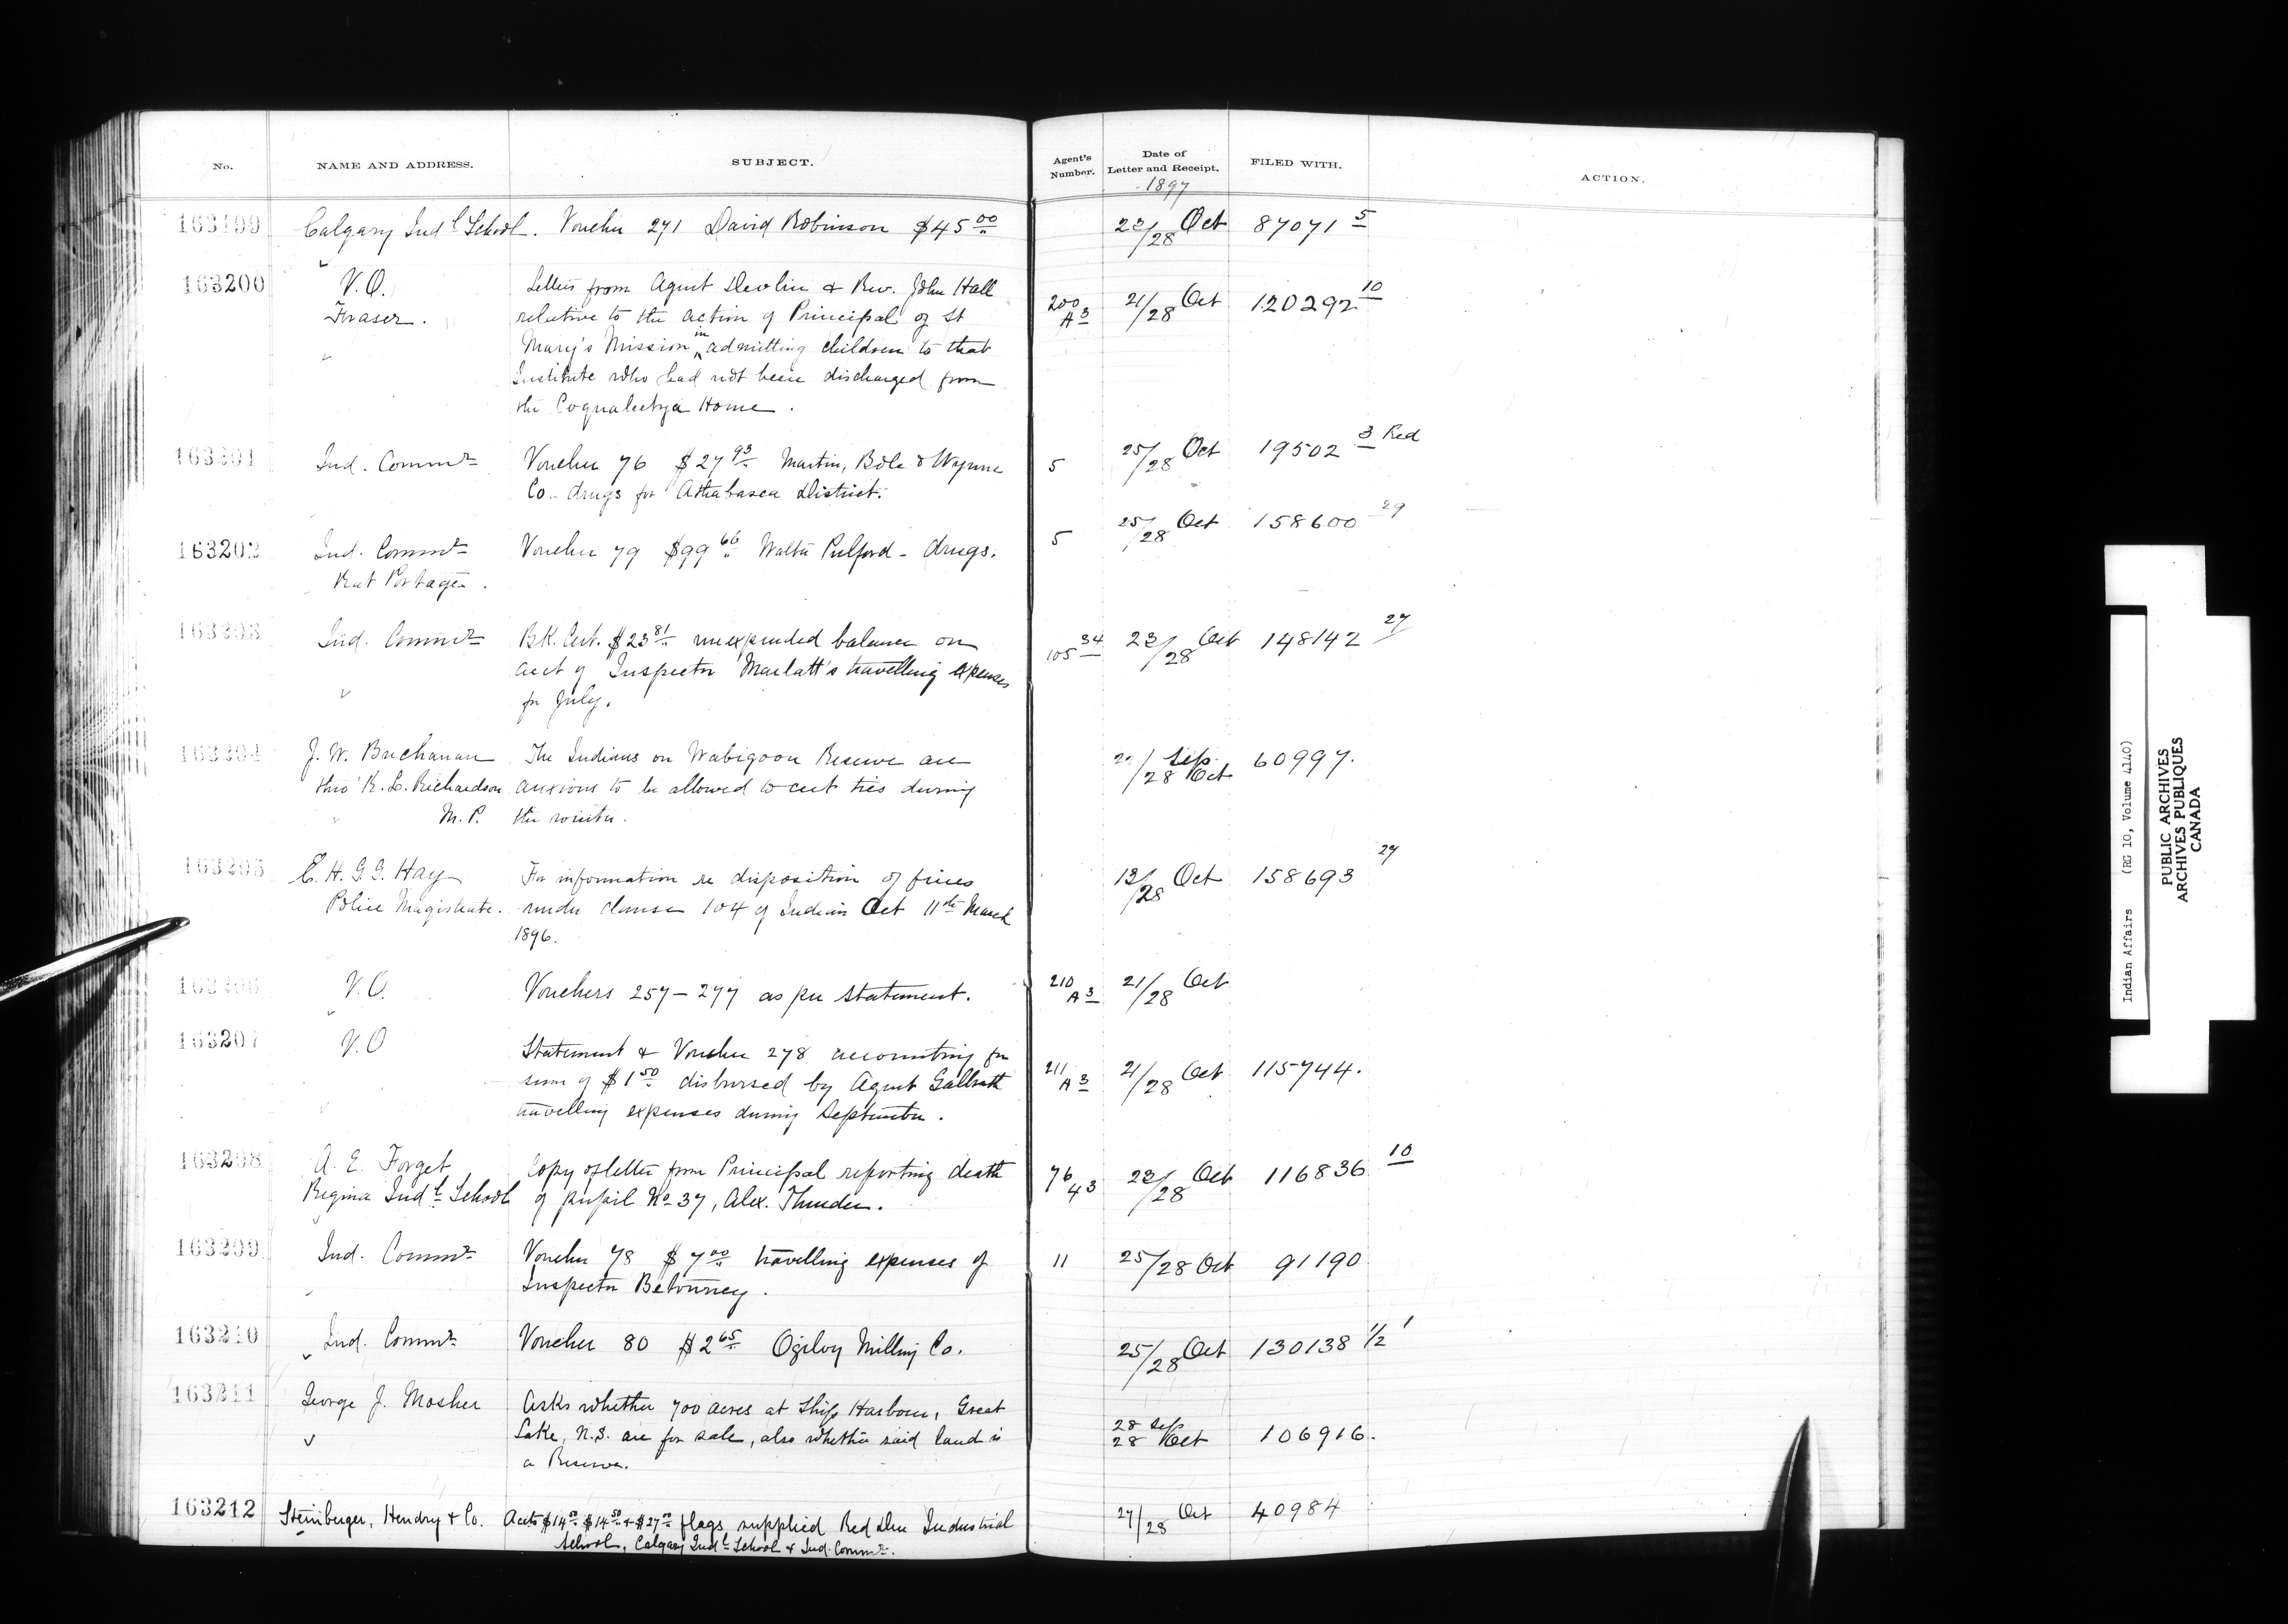 No. NAME AND ADDRESS. SUBJECT. Agent's Number. Date of Letter and Receipt. FILED WITH. ACTION.
1897
163199 Calgary Indl School. Voucher 271 David Robinson $45 00 28 Oct 87071 5
163200 V.O. Letters from Agent Devlin & Rev. John Hall 200 A 3 21/28 Oct 120292 10
Fraser. relative to the action of Principal of St
Mary's Mission in admitting children to that
Institute who had not been discharged from
the Coqualeetza Home.
163201 Ind. Commr Voucher 76 $27 93 Martin, Bole & Wynne 5 25/28 Oct 19502 3 Red
Co. drugs for Athabasca District.
163202 Ind. Commr Voucher 79 $99 66 Walter Pulford - drugs. 5 25/28 Oct 158600 29
Rat Portage.
163203 Ind. Commr Bk. Cert. $23 81 unexpended balance on 105 34 23/28 Oct 148142 27
acct of Inspector Marlatt's travelling expenses
for July.
163204 J. W. Buchanan The Indians on Wabigoon Reserve are Sep. 60997.
thro' R. L. Richardson anxious to be allowed to cut ties during 28 Oct
M.P. the winter.
163205 E. H. G. G. Hay For information re disposition of fines 13/28 Oct 158693 27
Police Magistrate. under clause 104 of Indian Act 11th March
1896.
163206 V.O. Vouchers 257-277 as per statement. 210 A 3 21/28 Oct
163207 V.O Statement & Voucher 278 accounting for 211 A 3 21/28 Oct 115744.
sum of $1 50 disbursed by Agent Galbraith
travelling expenses during September.
163208 A. E. Forget Copy of letter from Principal reporting death 76 43 23/28 Oct 116836 10
Regina Indl School of pupil No 37, Alex. Thunder.
163209 Ind. Commr Voucher 78 $7 00 travelling expenses of 11 25/28 Oct 91190
Inspector Betourney.
163210 Ind. Commr Voucher 80 $2 65 Ogilvy Milling Co. 25/28 Oct 130138 1/2 1
163211 George J. Mosher Asks whether 700 acres at Ship Harbour, Great 28 Sep
Lake, N.S. are for sale, also whether said land is 28 Oct 106916.
a Reserve.
163212 Steinberger, Hendry & Co. Accts $14 50 $14 50 & $27 00 flags supplied Red Deer Industrial 27/28 Oct 40984
School, Calgary Indl School & Ind. Commr.
Indian Affairs (RG 10, Volume 4140)
PUBLIC ARCHIVES
ARCHIVES PUBLIQUES
CANADA